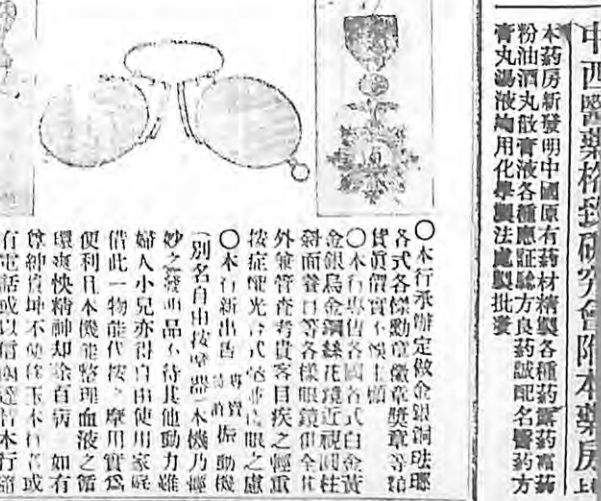 中西醫藥格致研究會附本藥房
本葯房新發明中國原有葯材精製各種葯露葯膏葯
粉油酒丸散膏液各種應証驗方良葯誠配名醫葯方
膏丸湯液均用化學製法處製批發
〇本行承辦定做金銀銅珐瑯
各式各樣勳章徽章獎章等類
貨真價實不悞主顧
〇本行專售各國各式白金黃
金銀烏金鋼絲花鏡近視圓柱
斜面養目等各樣眼鏡俱全
外兼管查考貴客目疾之輕重
按症驗光
〇本行新出售 專賣特許 振動機
一別名自由按摩器一本機乃輕
妙之發明品不待其他動力雖
婦人小兒亦得自由使用家庭
借此一物能代按摩用實爲
便利且本機能整理血液之循
環爽快精神却除百病 如有
尊紳貴坤不便移玉本行者或
有電話或以信函達昔本行